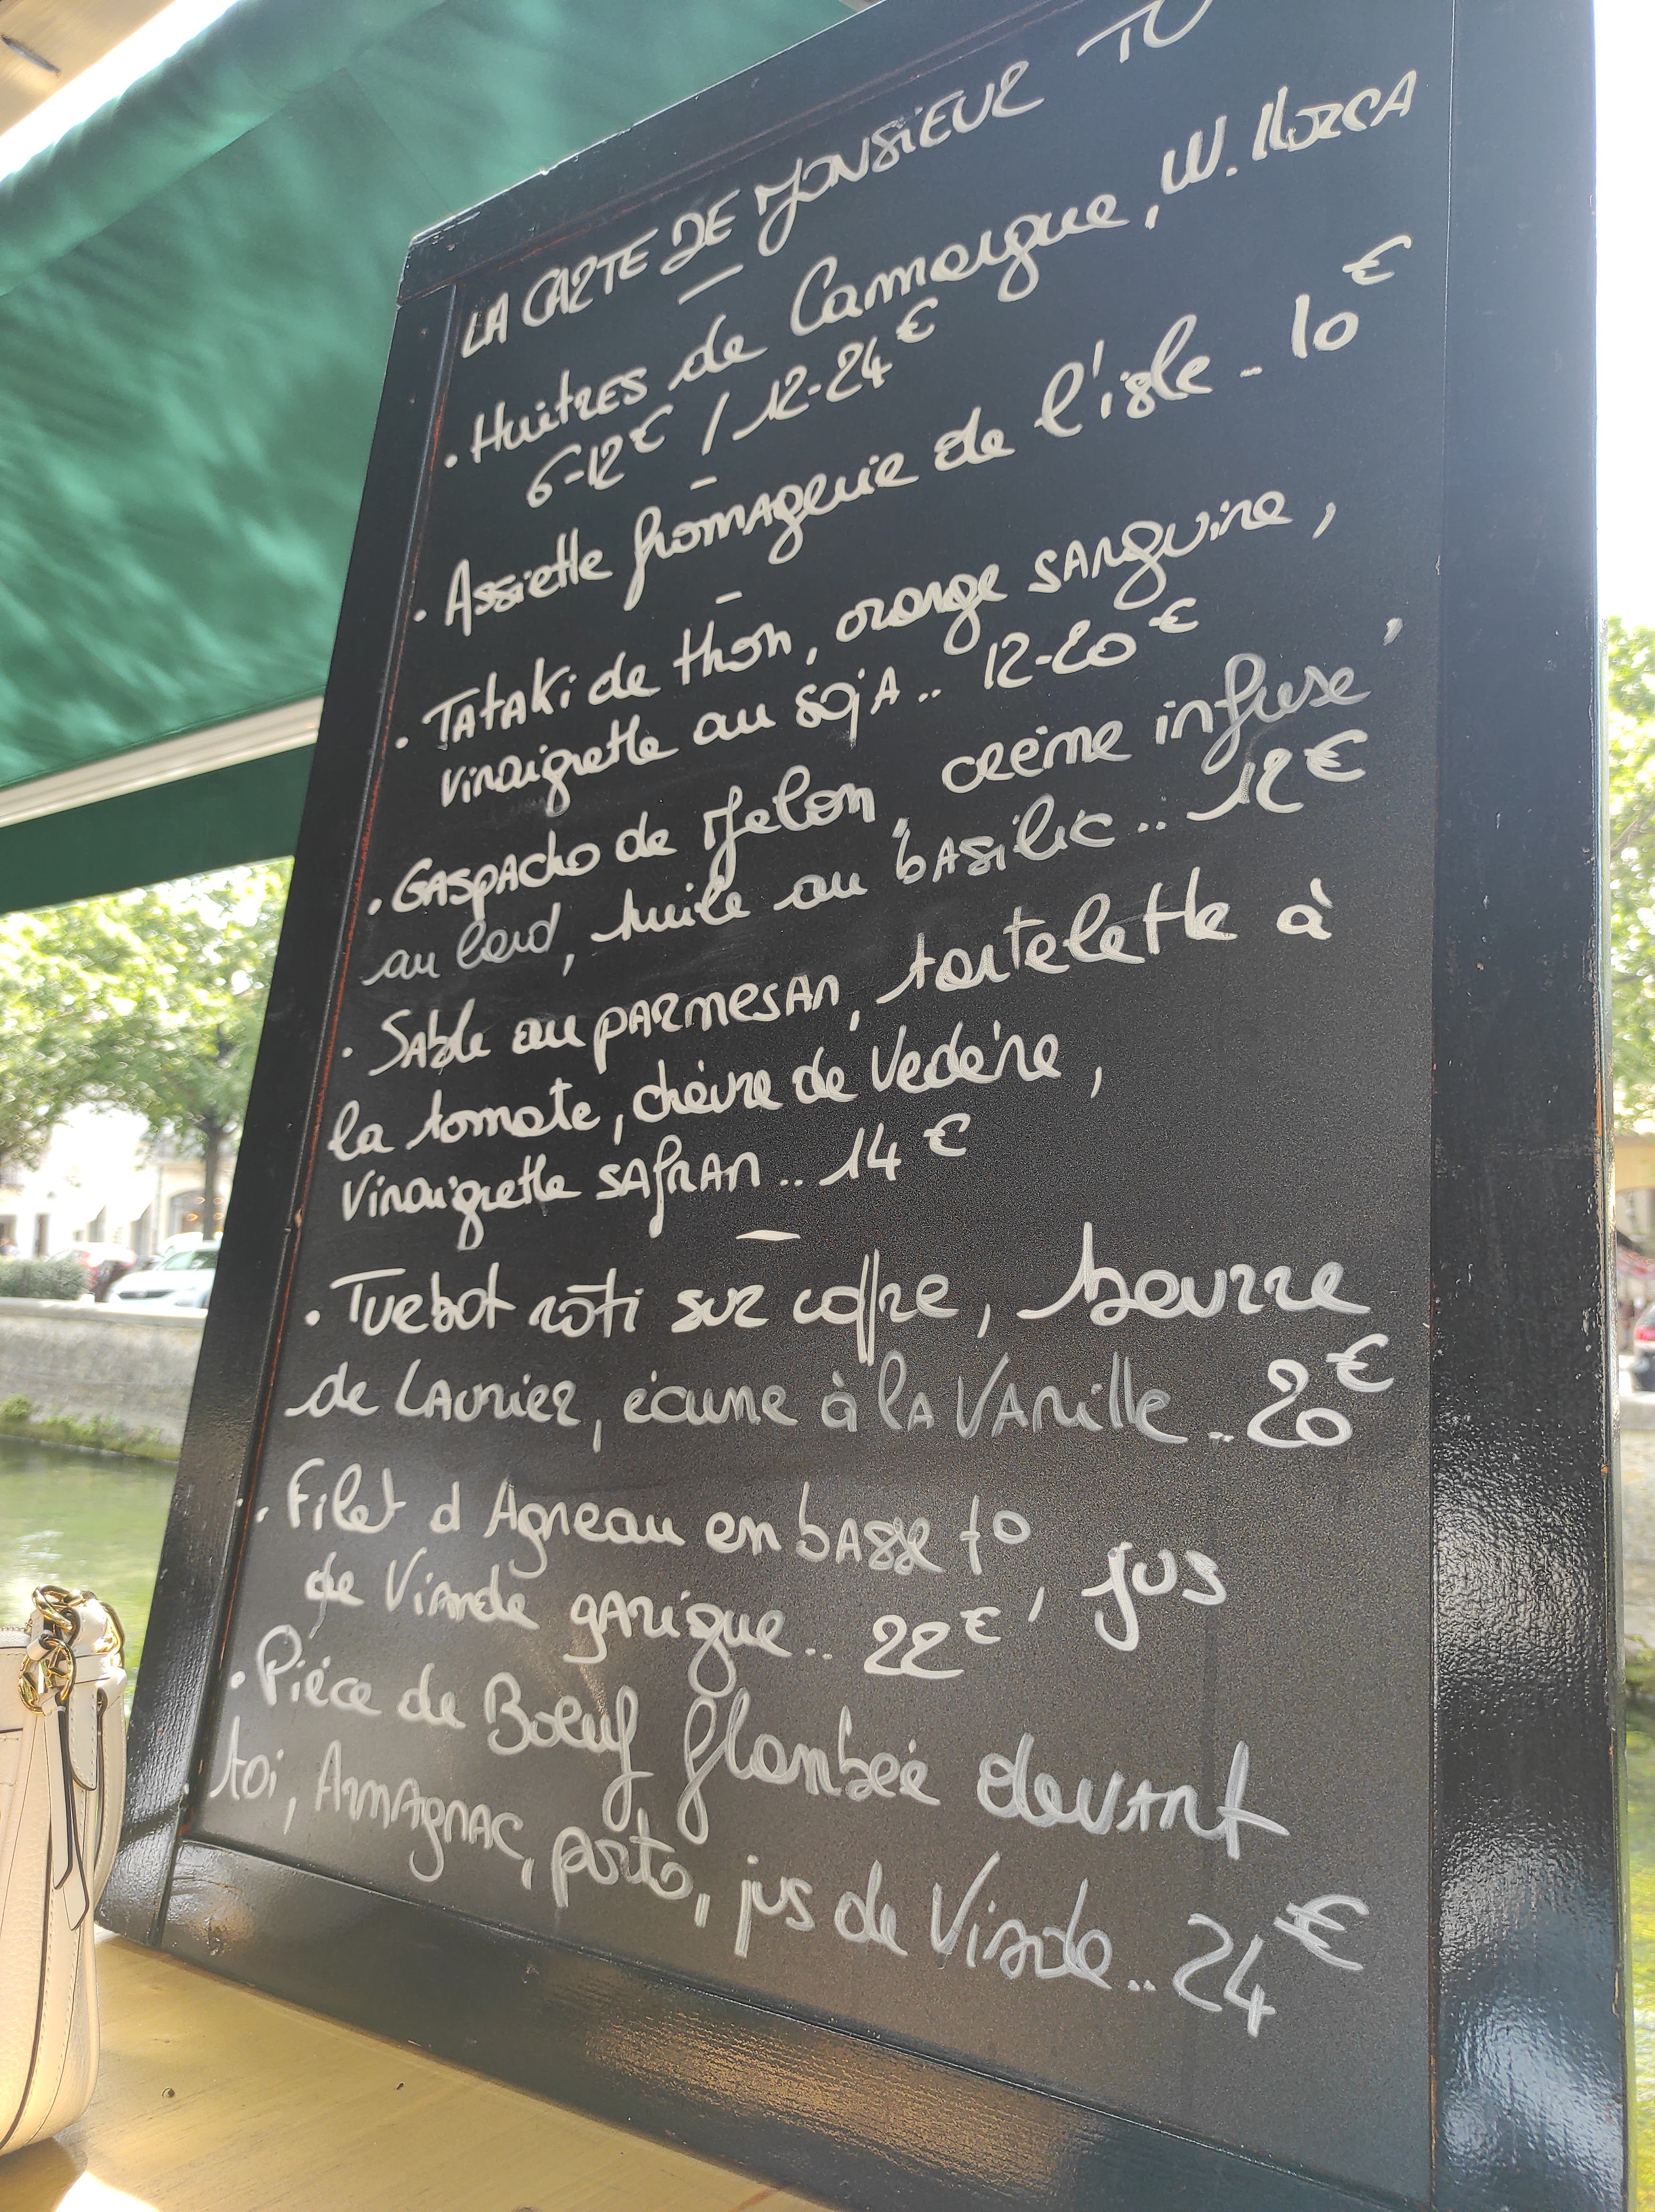 LA CARTE DE MONSIEUR TO
· Huîtres de Camargue, W. Morca
6-12€ / 12-24€
· Assiette fromagerie de l'isle .. 10€
· Tataki de thon, orange sanguine,
vinaigrette au soja .. 12-20€
· Gaspacho de Melon, crème infusé,
au lard, huile au basilic .. 12€
· Sablé au parmesan, tartelette à
la tomate, chèvre de Vedène,
vinaigrette safran .. 14€
· Turbot rôti sur coffre, beurre
de Laurier, écume à la Vanille .. 20€
· Filet d Agneau en basse t°, jus
de Viande garigue .. 22€
· Pièce de Boeuf flambée devant
toi, Armagnac, porto, jus de Viande .. 24€